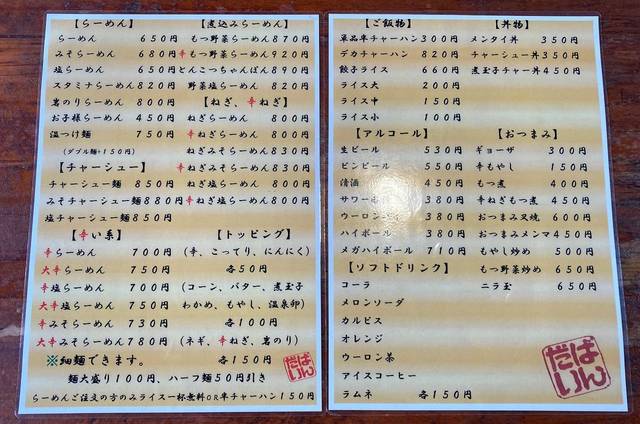 【らーめん】
らーめん 650円
みそらーめん 680円
塩らーめん 650円
スタミナらーめん 820円
岩のりらーめん 800円
お子様らーめん 450円
温つけ麺 750円
(ダブル麺+150円)
【チャーシュー】
チャーシュー麺 850円
みそチャーシュー麺 880円
塩チャーシュー麺 850円
【辛い系】
辛らーめん 700円
大辛らーめん 750円
辛塩らーめん 700円
大辛塩らーめん 750円
辛みそらーめん 730円
大辛みそらーめん 780円
※細麺できます。
【煮込みらーめん】
もつ野菜らーめん 870円
辛もつ野菜らーめん 920円
とんこつちゃんぽん 890円
野菜塩らーめん 820円
【ねぎ、辛ねぎ】
ねぎらーめん 800円
辛ねぎらーめん 800円
ねぎみそらーめん 830円
辛ねぎみそらーめん 830円
ねぎ塩らーめん 800円
辛ねぎ塩らーめん 800円
【トッピング】
(辛、こってり、にんにく)
各50円
(コーン、バター、煮玉子
わかめ、もやし、温泉卵)
各100円
(ネギ、辛ねぎ、岩のり)
各150円
麺大盛り100円、ハーフ麺50円引き
らーめんご注文の方のみライス一杯無料OR半チャーハン150円
ばだんい
【ご飯物】
単品半チャーハン 300円
デカチャーハン 820円
餃子ライス 660円
ライス大 200円
ライス中 150円
ライス小 100円
【アルコール】
生ビール 530円
ビンビール 550円
清酒 450円
サワー 380円
ウーロン 380円
ハイボール 380円
メガハイボール 710円
【ソフトドリンク】
コーラ
メロンソーダ
カルピス
オレンジ
ウーロン茶
アイスコーヒー
ラムネ 各150円
【丼物】
メンタイ丼 350円
チャーシュー丼 350円
煮玉子チャー丼 450円
【おつまみ】
ギョーザ 300円
辛もやし 150円
もつ煮 400円
辛ねぎもつ煮 450円
おつまみ叉焼 600円
おつまみメンマ 450円
もやし炒め 500円
もつ野菜炒め 650円
ニラ玉 650円
ばだんい